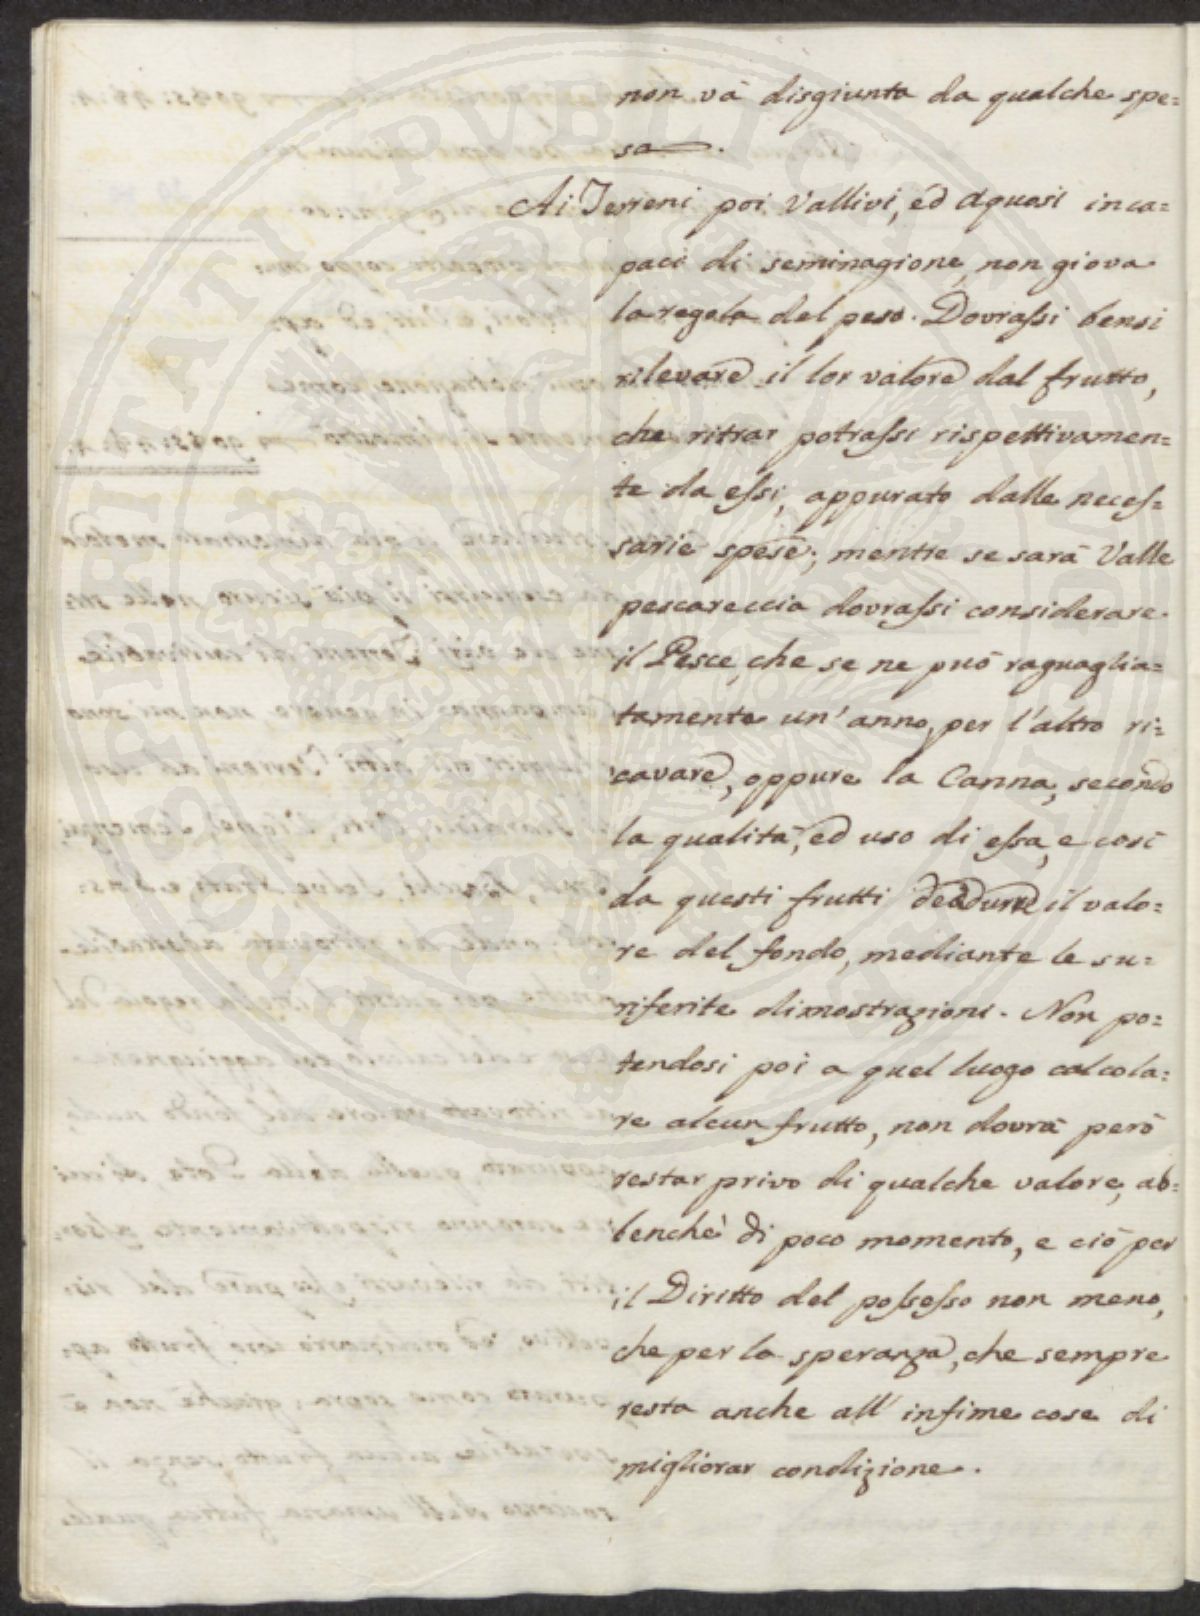 non và disgiunta da qualche spe=
sa.
Ai Terreni poi Vallivi, ed aquosi inca=
paci di seminagione, non giova
la regola del peso. Dovrassi bensi
rilevare il lor valore dal frutto,
che ritrar potrassi rispettivamen=
te da essi, appurato dalle neces=
sarie spese; mentre se sarà Valle
pescareccia dovrassi considerare
il Pesce, che se ne può raguaglia=
tamente un' anno, per l'altro ri=
cavare, oppure la Canna, secondo
la qualità, ed uso di essa, e così
da questi frutti dedurre il valo=
re del fondo, mediante le su=
riferite dimostrazioni. Non po=
tendosi poi a quel luogo calcola=
re alcun frutto, non dovrà però
restar privo di qualche valore, ab=
benchè di poco momento, e ciò per
il Diritto del possesso non meno,
che per la speranza, che sempre
resta anche all' infime cose di
migliorar condizione.